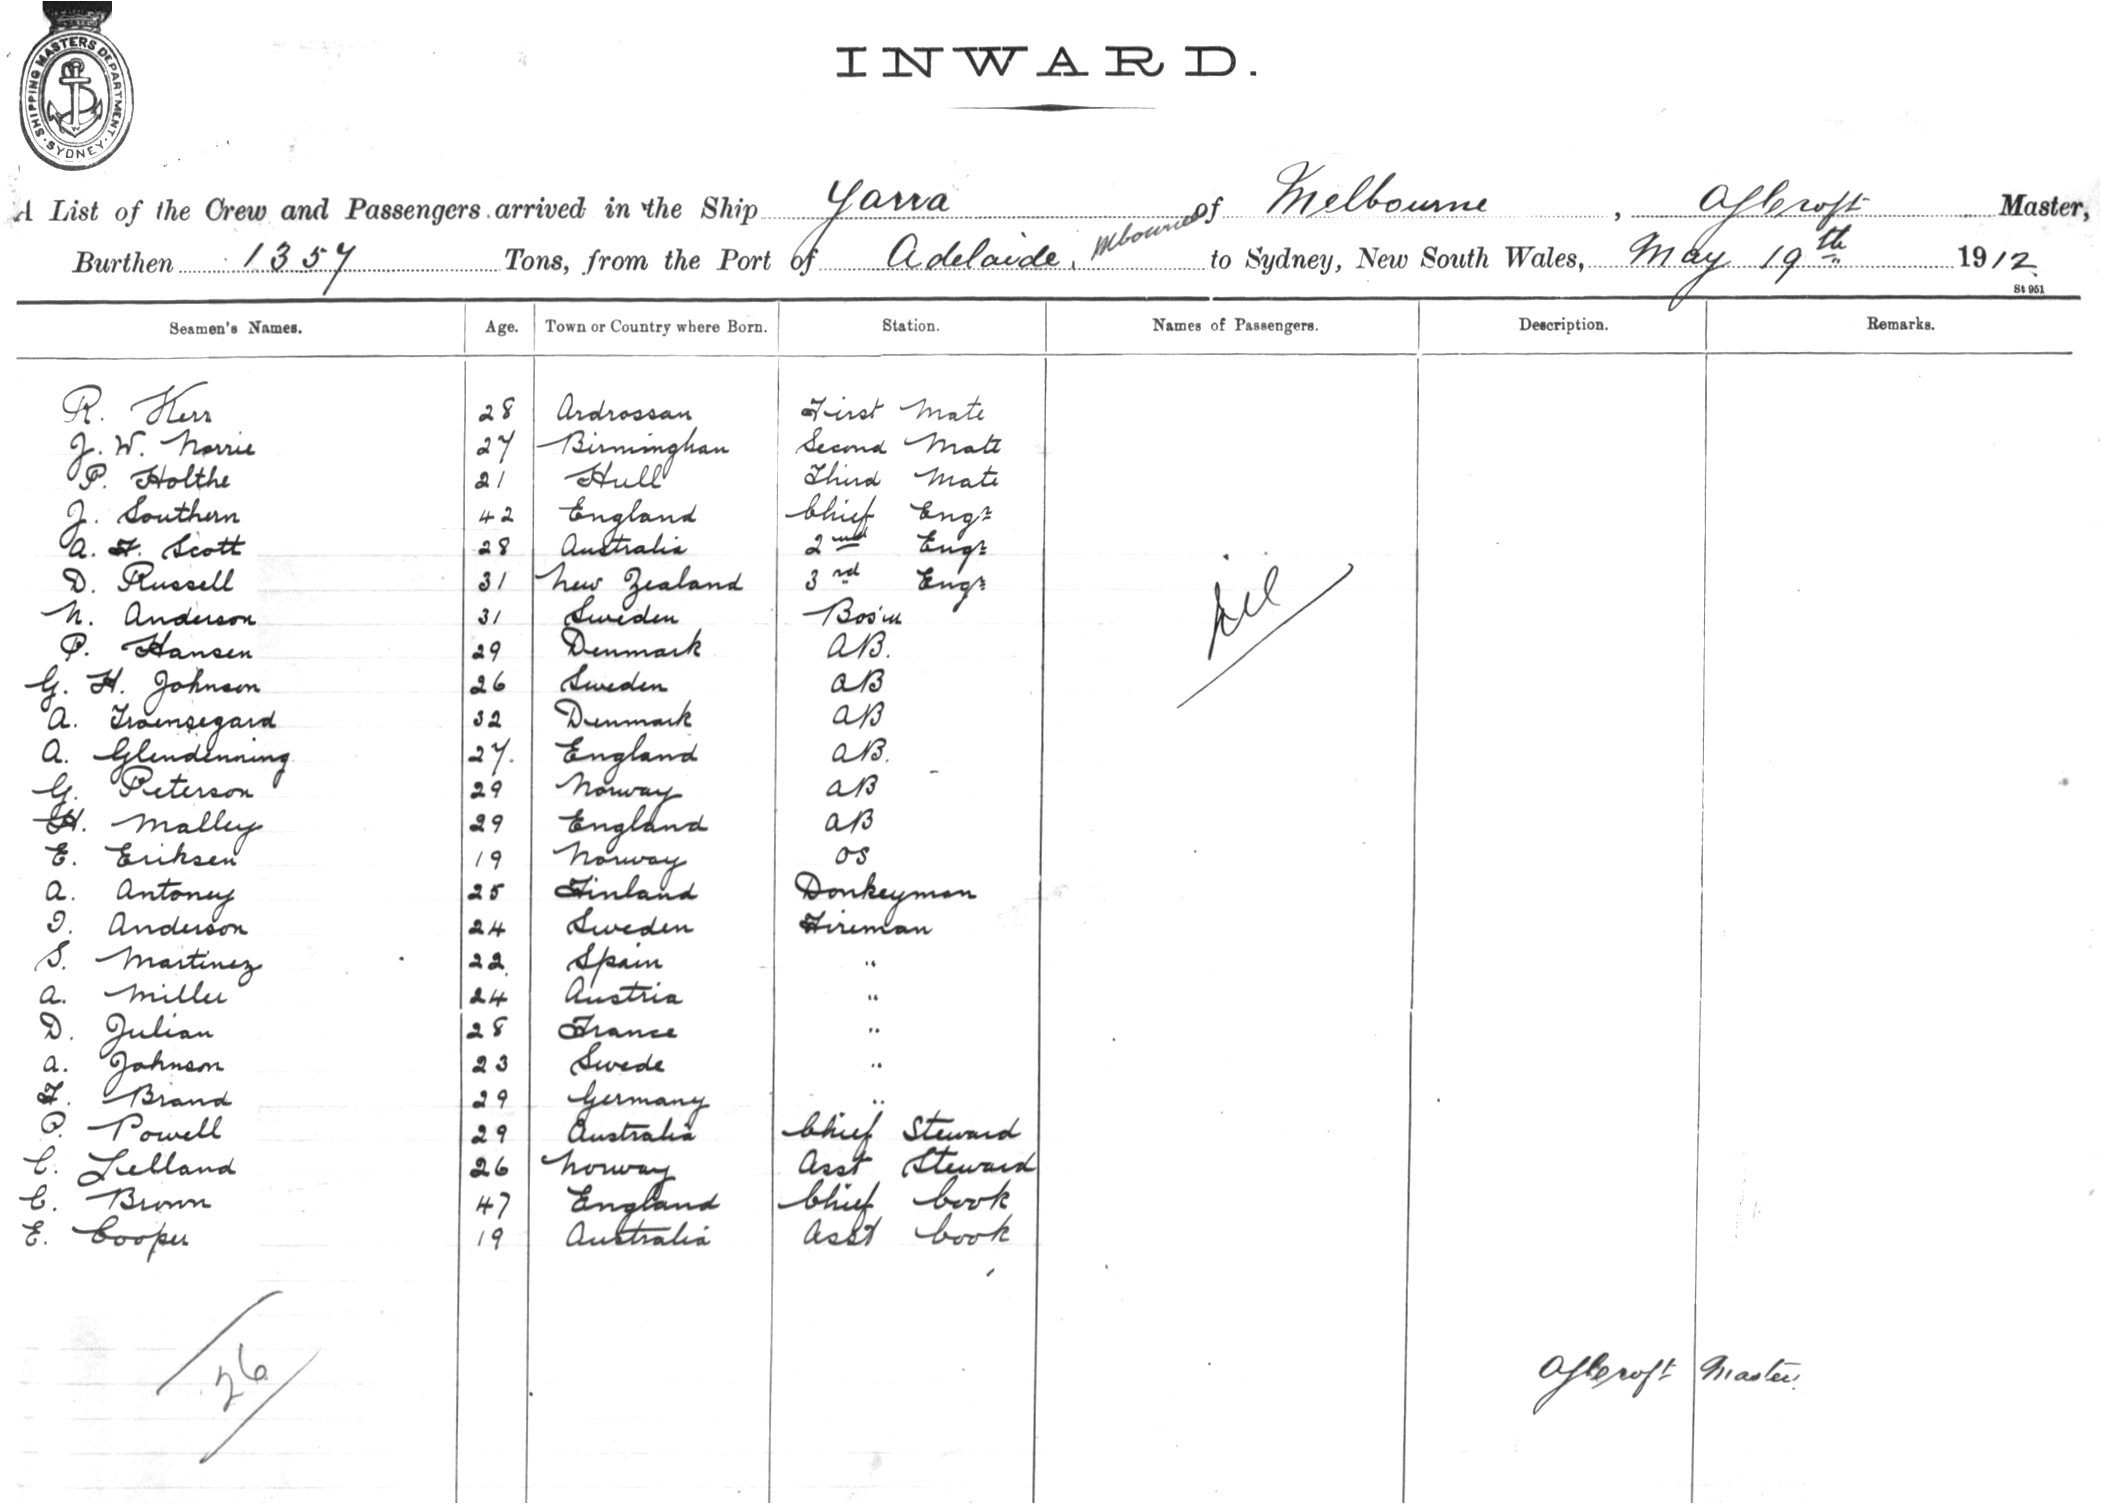 SHIPPING MASTERS DEPARTMENT. SYDNEY.
INWARD.
A List of the Crew and Passengers arrived in the Ship Yarra of Melbourne, Master,
Burthen 1357 Tons, from the Port of Adelaide, to Sydney, New South Wales, May 19th 1912
St 951
Seamen's Names. Age. Town or Country where Born. Station. Names of Passengers. Description. Remarks.
R. Kerr 28 Ardrossan First Mate
J. W. Norrie 27 Birminghan Second Mate
P. Holthe 21 Hull Third Mate
J. Southern 42 England Chief Engr
A. H. Scott 28 Australia 2nd Engr
D. Russell 31 New Zealand 3rd Engr
N. Anderson 31 Sweden Bos'n
nil
P. Hansen 29 Denmark AB.
G. H. Johnson 26 Sweden AB
A. Troensegard 32 Denmark AB
A. Glendenning 27. England AB.
G. Peterson 29 Norway AB
H. Malley 29 England AB
E. Eriksen 19 Norway OS
A. Antoney 25 Finland Donkeyman
Anderson 24 Sweden Fireman
S. Martinez 22 Spain "
A. Miller 24 Austria "
D. Julian 28 France "
A. Johnson 23 Swede "
F. Brand 29 Germany "
P. Powell 29 Australia Chief Steward
C. Lelland 26 Norway Asst Steward
C. Brown 47 England Chief Cook
E. Cooper 19 Australia Asst Cook
26
Master